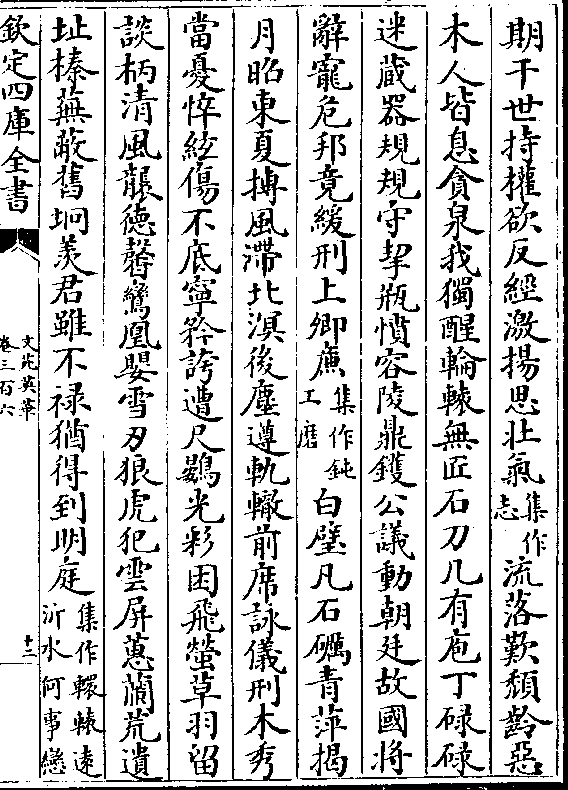 期干世持權欲反經激揚思壯氣集作志流落歎頹齡惡
木人皆息貪泉我獨醒輪轅無匠石刀几有庖丁碌碌
迷藏器規規守挈瓶憤容陵鼎鑊公議動朝廷故國將
辭寵危邦竟緩刑上卿鹿集作鈍工磨白璧凡石礪青萍揭
月昭東夏摶風滯北溟後塵遵軌轍前席詠儀刑木秀
當憂悴絃傷不底寧矜誇遭尺鷃光彩困飛螢草羽留
談柄清風襲德馨鸞凰嬰雪刃狼虎犯雲屏蕙蘭荒遺
址榛蕪蔽舊坰羨君雖不祿猶得到明庭集作轘轅遠沂水何事戀
欽定四庫全書
文苑英華
卷三百六
十二